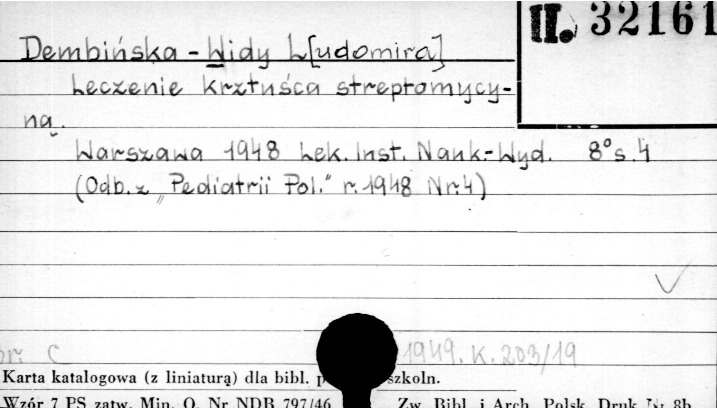 II. 32161
Dembińska-Widy L[udomira]
Leczenie krztuśca streptomycy-
ną.
Warszawa 1948 Lek. Inst. Nauk.-Wyd. 8° s. 4
(Odb. z „Pediatrii Pol." r. 1948 Nr. 4)
C 1949. K. 203/19
Karta katalogowa (z liniaturą) dla bibl. szkoln.
Wzór 7 PS zatw. Min. O. Nr NDB 797/46 Zw. Bibl. i Arch. Polsk. Druk 8b